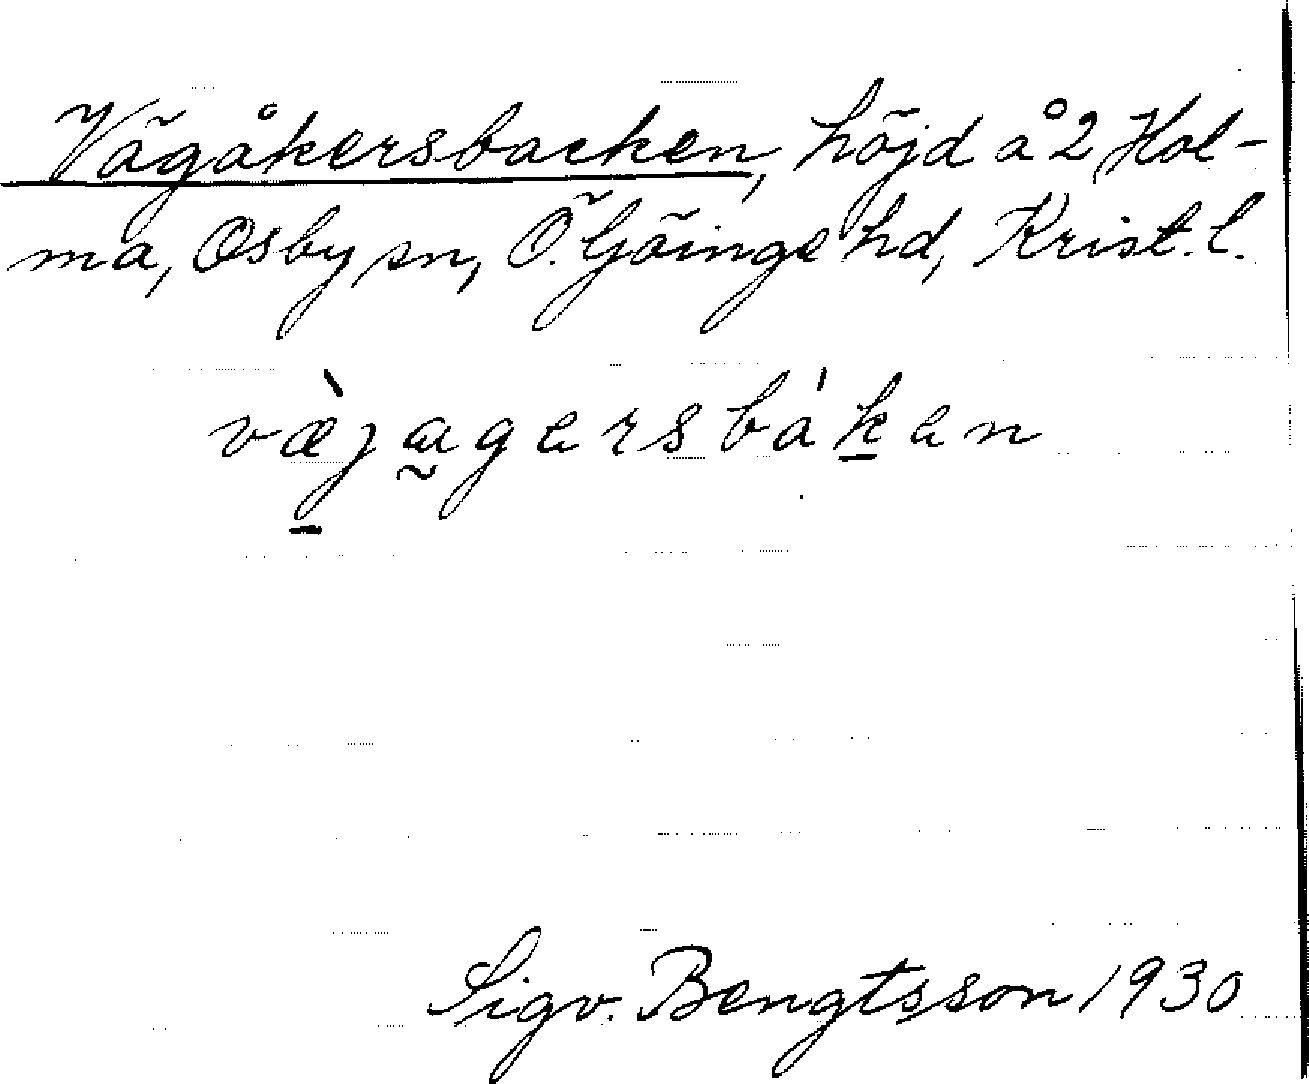 Vägåkersbacken, höjd å 2 Hol-
ma, Osby sn, Ö. Göinge hd, Krist. l.
væ̀jagersbáken
Sigv. Bengtsson 1930